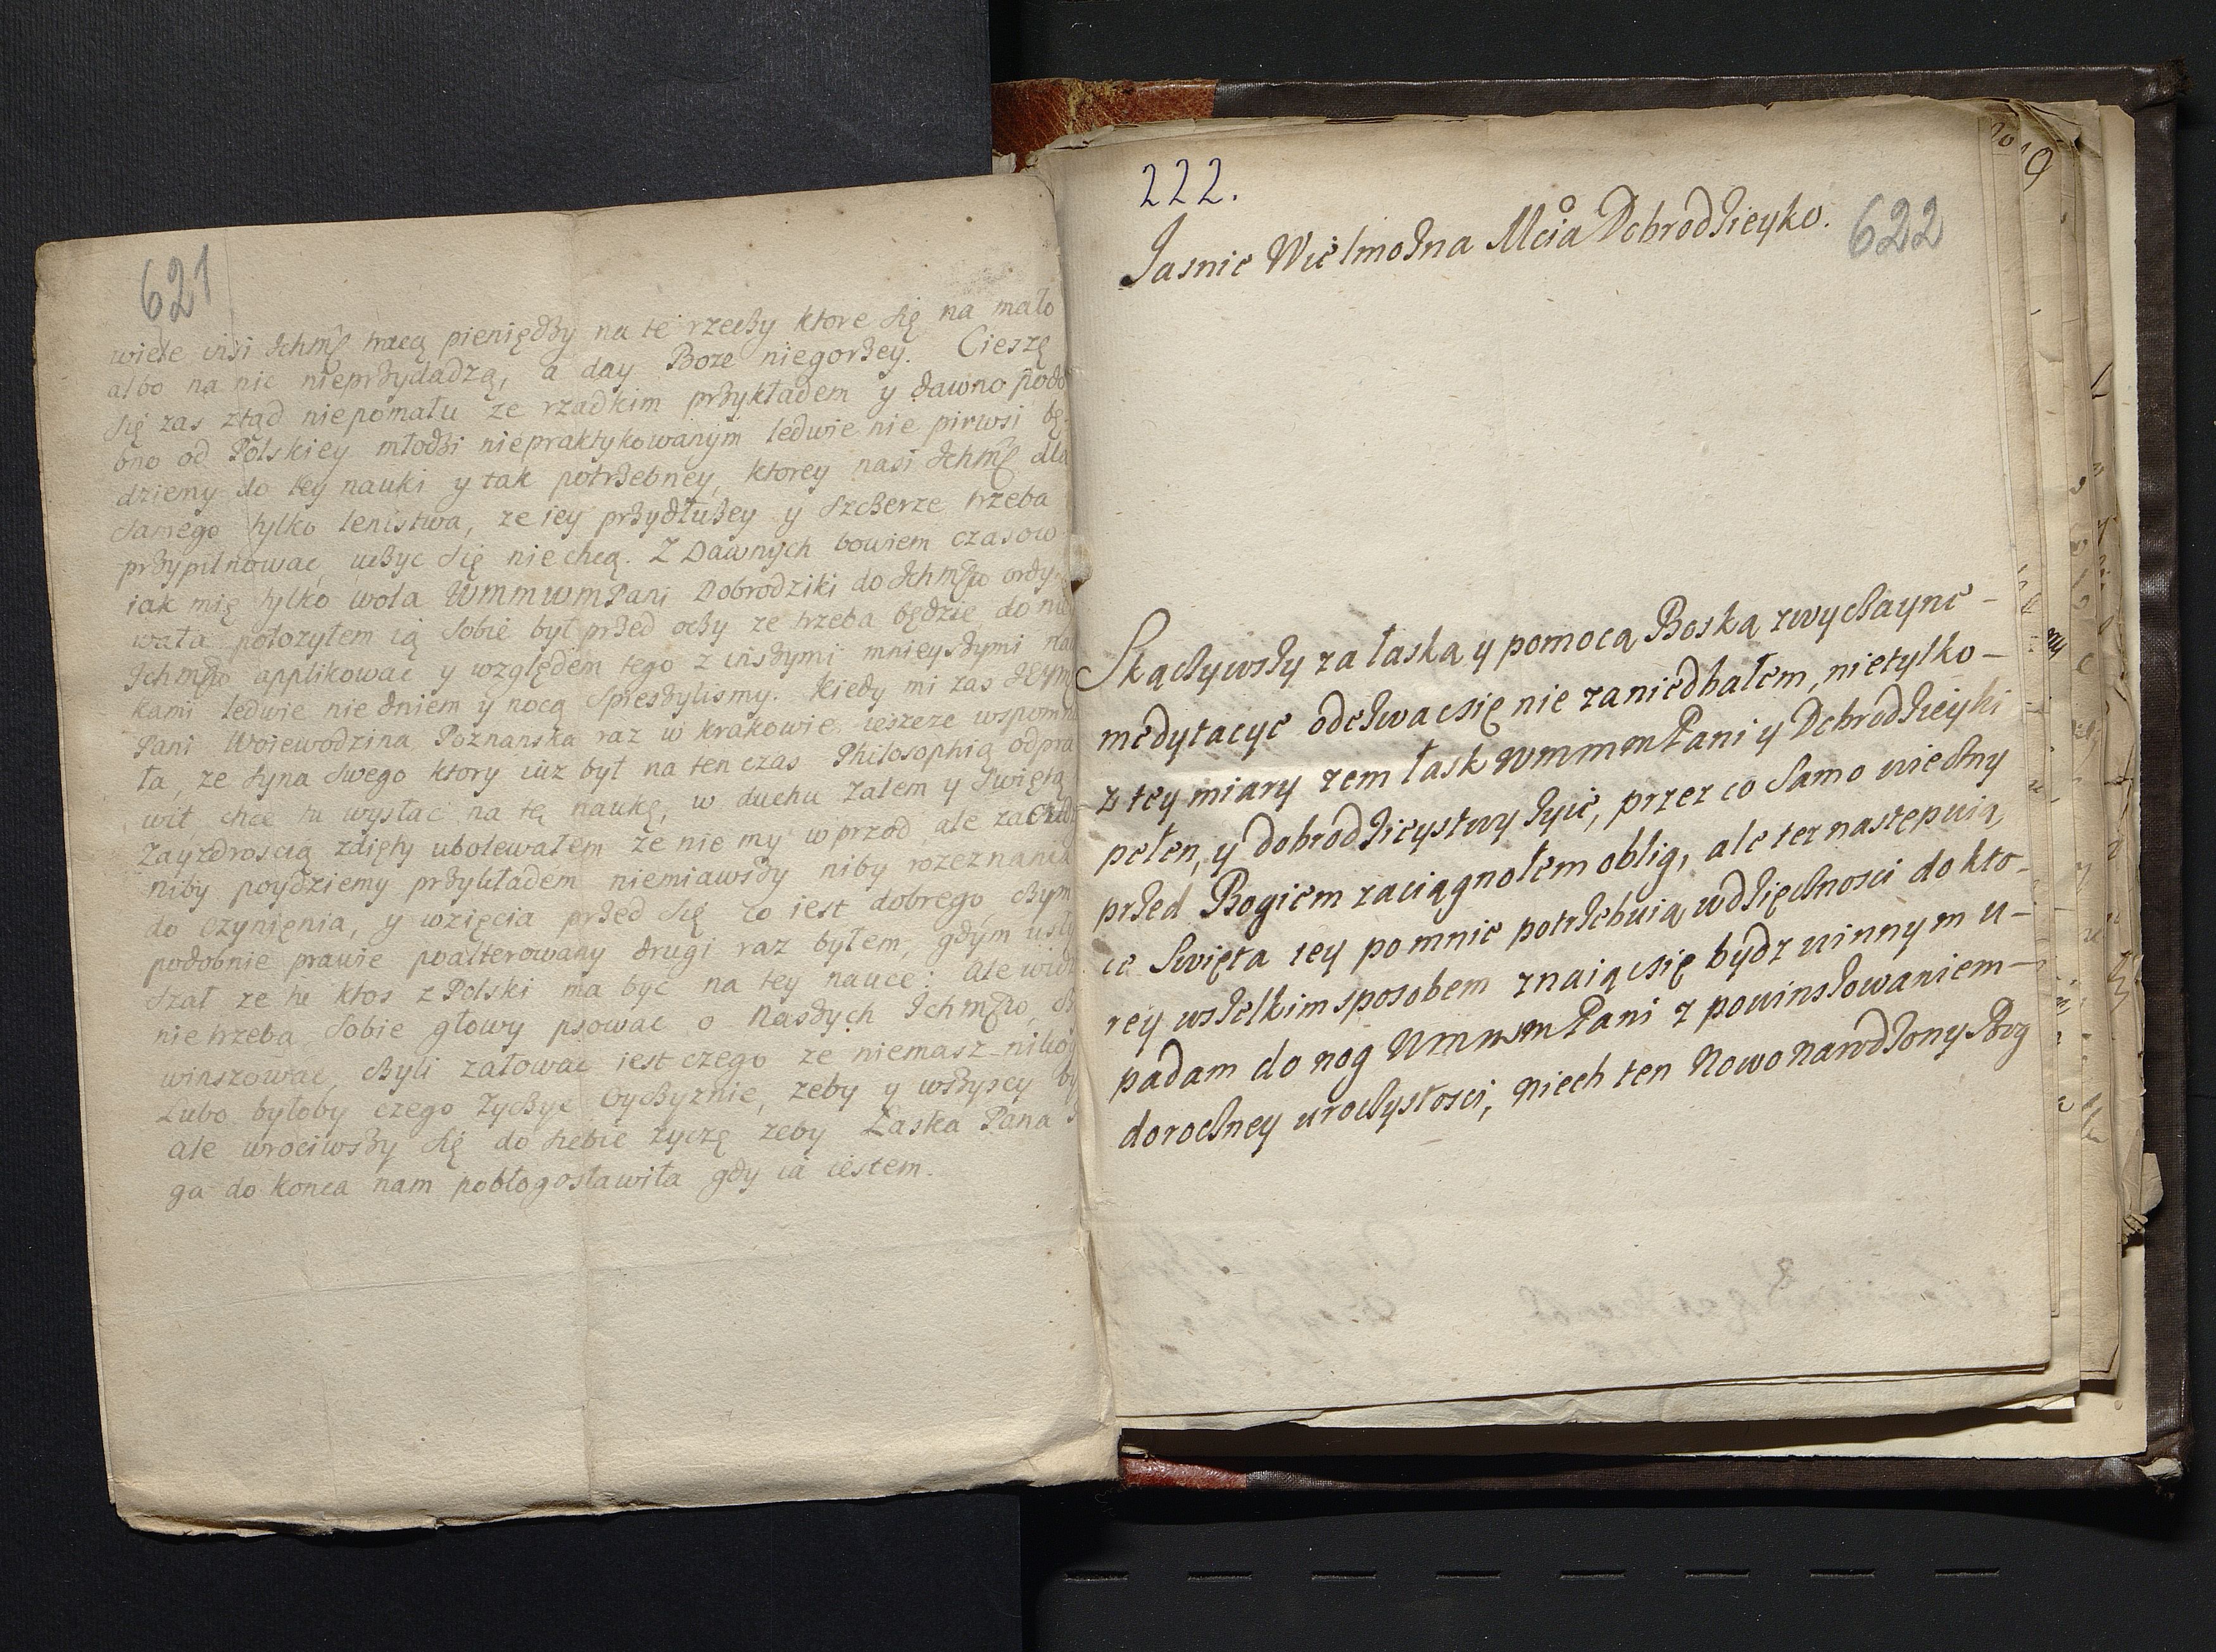 621
wiele insi Ichmć tracą pieniędzy na te rzeczy ktore się na mało
albo na nic nieprzydadzą, a day Boze niegorzey. Cieszę
się zas ztąd niepomału ze rzadkim przykładem y dawno podo
bno od Polskiey młodzi niepraktykowanym ledwie nie pirwsi bę-
dziemy do tey nauki y tak potrzebney, ktorey nasi Ichmć dla
samego tylko lenistwa, ze iey przydłuzey y szczerze trzeba
przypilnowac, uczyc się niechcą. Z Dawnych bowiem czasow
iak mię tylko wola WMMWMPani Dobrodziki do Ichmćw ordy-
wała połozyłem ią sobie był przed oczy ze trzeba będzie do
Ichmćw applikowac y względem tego z inszymi mnieyszymi
kami ledwie nie dniem y nocą spieszylismy. Kiedy mi zas
Pani Woiewodzina Poznanska raz w krakowie ieszcze wspomn
ła, ze syna swego ktory iuz był na ten czas Philosophią odpra
wił chce tu wysłac na tę naukę, w duchu zalem y swiętą
zayzdroscią zdięty ubolewałem ze nie my wprzod ale za
niby poydziemy przykładem niemiawszy niby rozeznania
do czynięnia, y wzięcia przed się co iest dobrego, czym
podobnie prawie poalterowany drugi raz byłem, gdym usły
szał ze tu ktos z Polski ma byc na tey nauce: Ale widz
nie trzeba sobie głowy psowac o Naszych Ichmćw,
winszowac, czyli załowac iest czego ze niemasz
Lubo byłoby czego zyczyc Oyczyznie, zeby y wszyscy by
ale wrociwszy się do siebie zyczę zeby Łaska Pana
ga do konca nam pobłogosławiła gdy ia iestem.
222.
622
Jasnie Wielmozna Mcia Dobrodzieyko.
Skączywszy za łaską y pomocą Boską zwyczayne -
medytacye odezwac się nie zaniedbałem, nietylko -
z tey miary zem łask WMMMPani y Dobrodzieyki
pełen, y dobrodzieystwy zyie, przez co samo wieczny
przed Bogiem zaciągnołem oblig, ale tez następuią,
ce Swięta tey po mnie potrzebuią wdzięcznosci do kto-
rey wszelkim sposobem znaiąc się bydz winnym u-
padam do nog WMMWMPani z powinszowaniem -
doroczney uroczystosci, niech ten Nowo Narodzony Bog